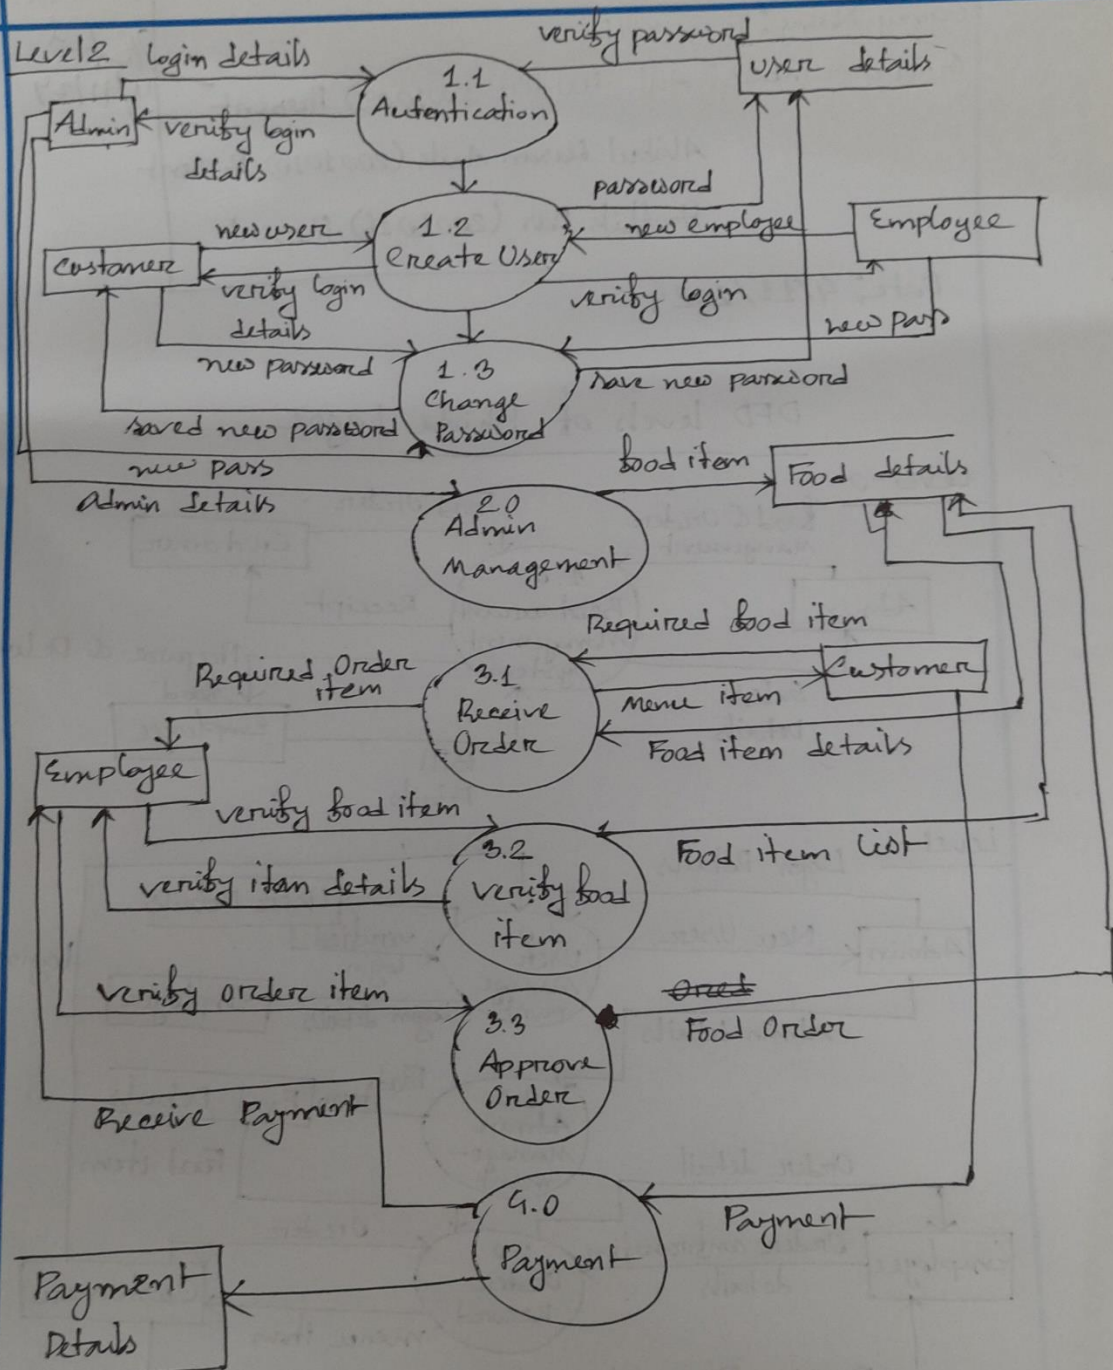 Level 2
login details
verify password
user details
1.1
Autentication
Admin
verify login
details
password
1.2
Create User
new user
new employee
Employee
Customer
verify login
details
verify login
new pass
new password
1.3
Change
Password
save new password
saved new password
new pass
Admin details
food item
Food details
2.0
Admin
Management
Required food item
Required Order
item
3.1
Receive
Order
Menu item
Customer
Food item details
Employee
verify food item
3.2
verify food
item
Food item List
verify itam details
verify order item
3.3
Approve
Order
Food Order
Receive Payment
4.0
Payment
Payment
Payment
Details